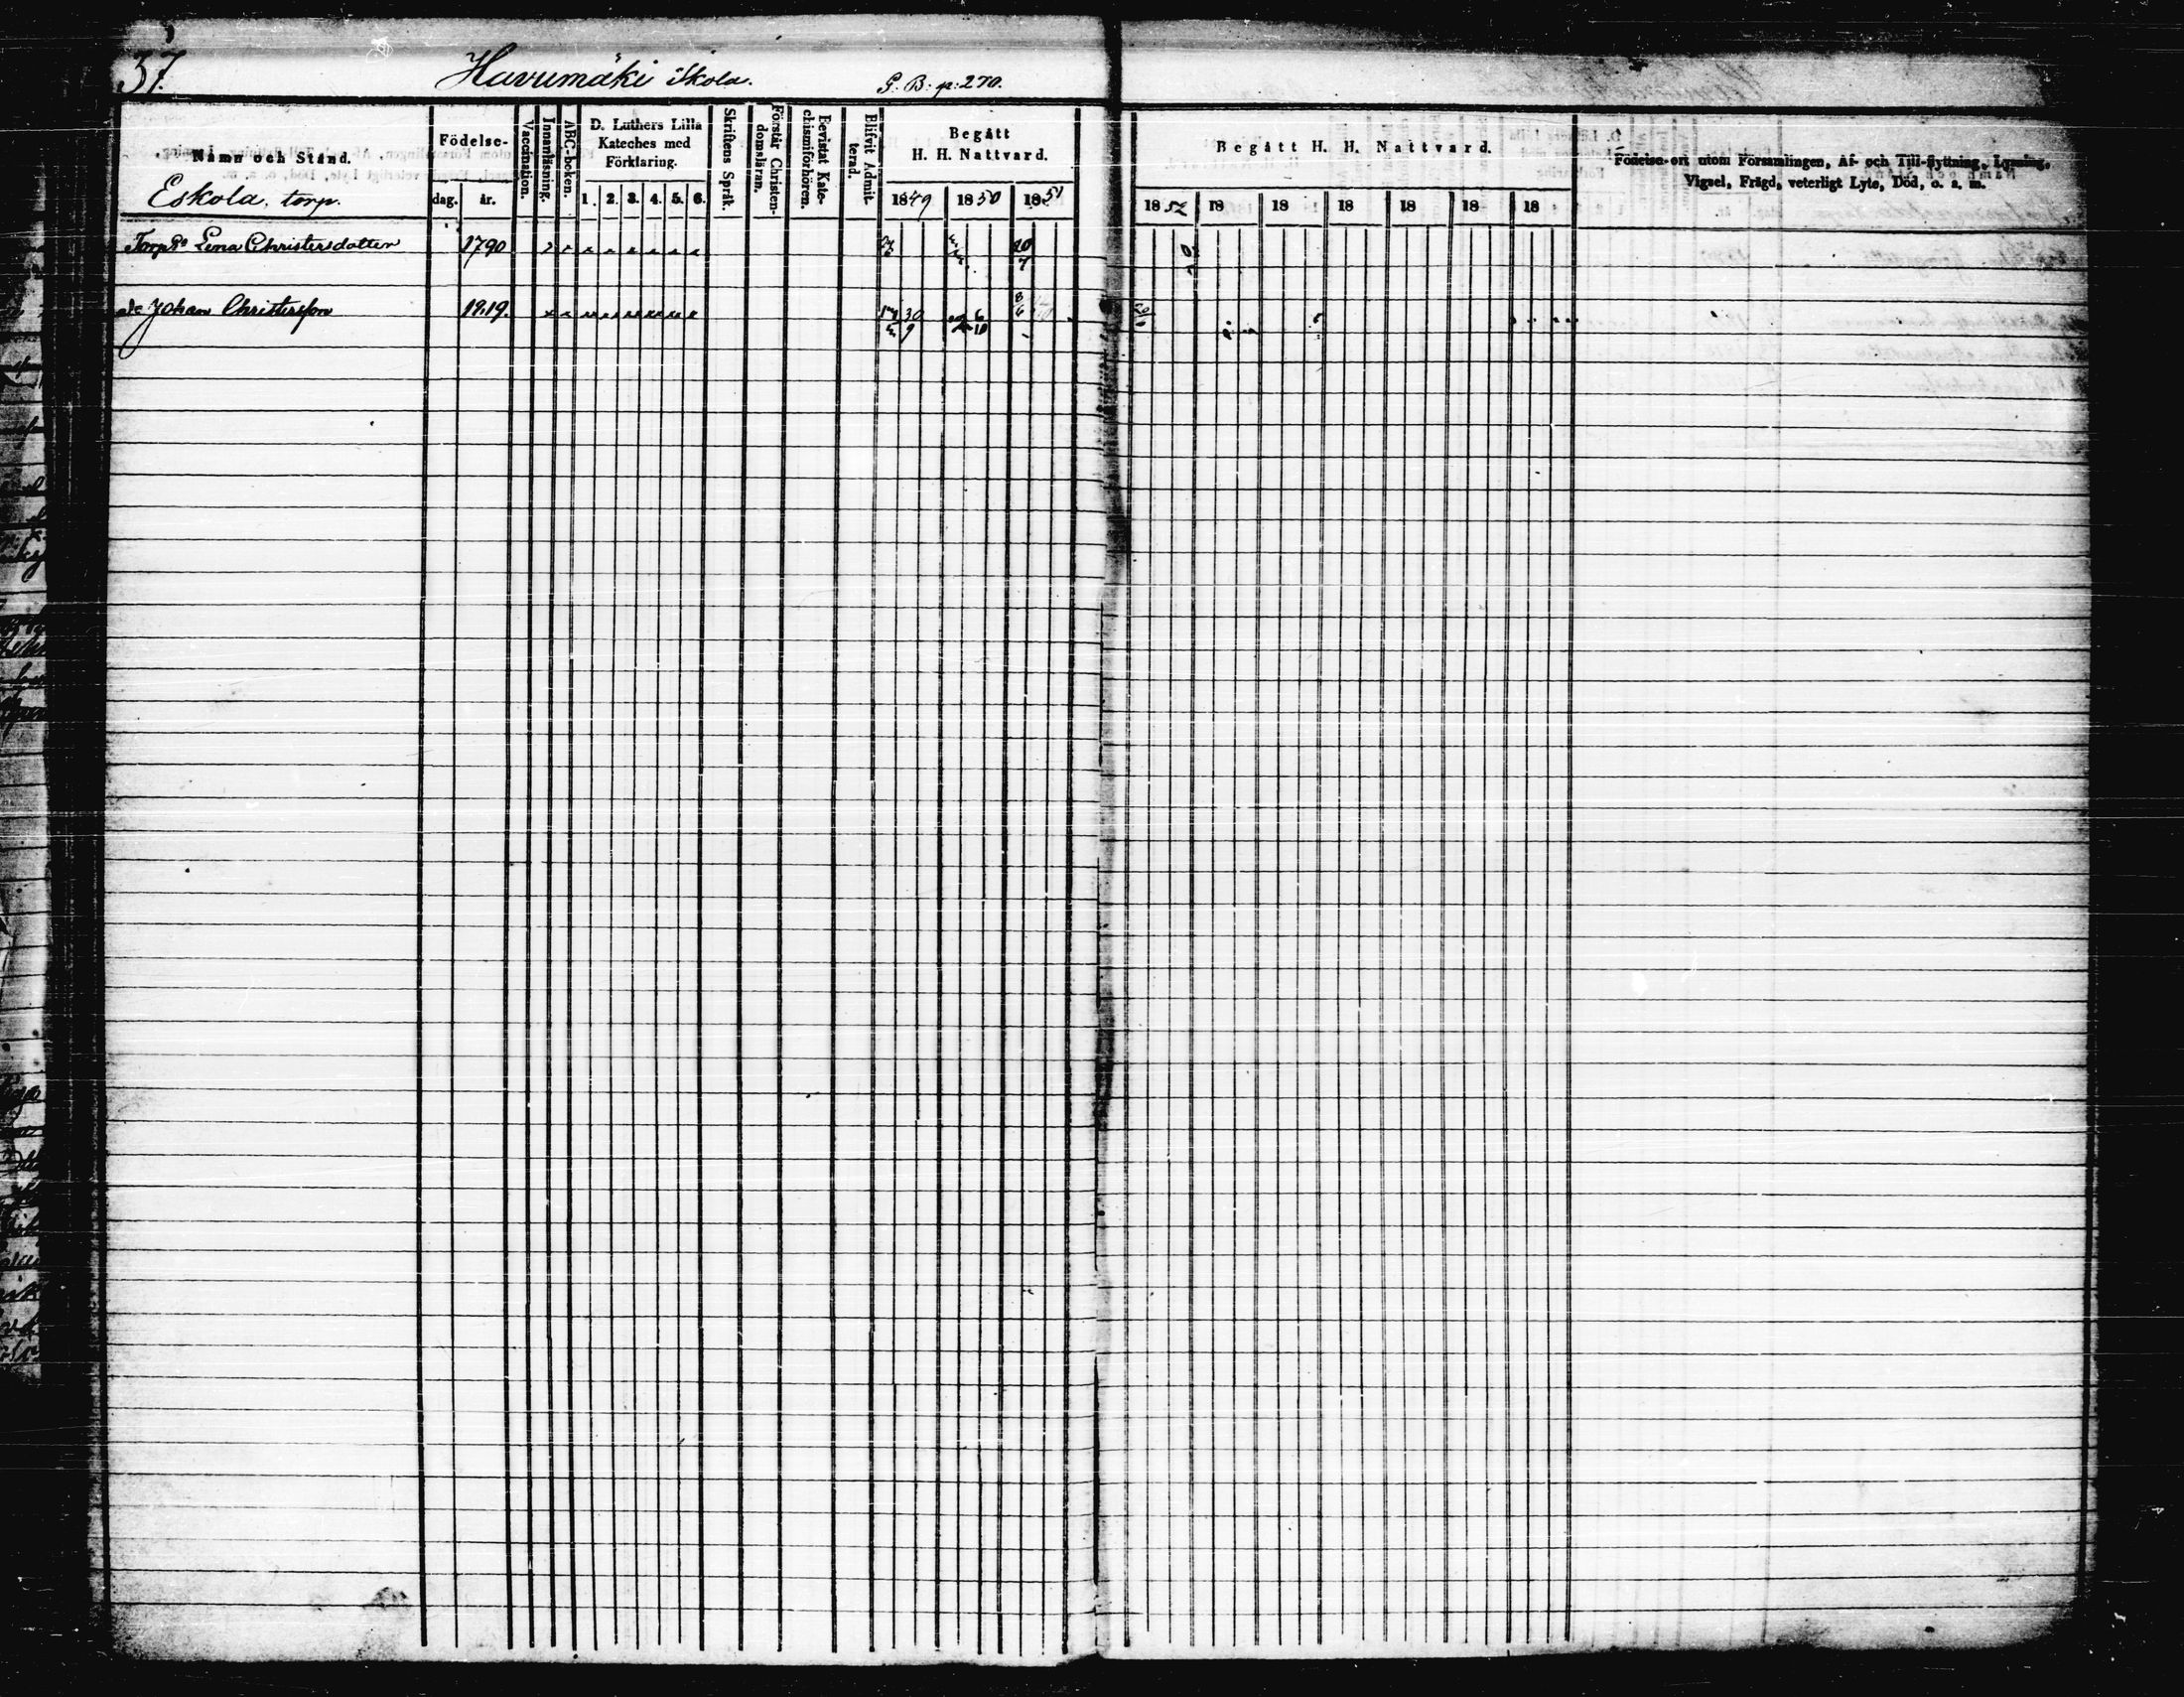 37.
Havumäki Eskola. G. B. p: 270.
Namn och Stånd.
Födelse-
dag. år.
Vaccination.
Innanläsning.
ABC-boken.
D. Luthers Lilla
Kateches med
Förklaring.
1. 2. 3. 4. 5. 6.
Skriftens Språk.
Förstår Christen-
domsläran.
Bevistat Kate-
chismiförhören.
Blifvit Admit-
terad.
Begått
H. H. Nattvard.
1849 1850 1851
Begått H. H. Nattvard.
1852 18 18 18 18 18 18
Födelse-ort utom Församlingen, Af- och Till-flyttning, Lysning,
Vigsel, Frägd, veterligt Lyte, Död, o. s. m.
Eskola torp.
Lena Christersdotter 1790 20 7
Johan Christersson 1819. 30 9 6 10 8 6